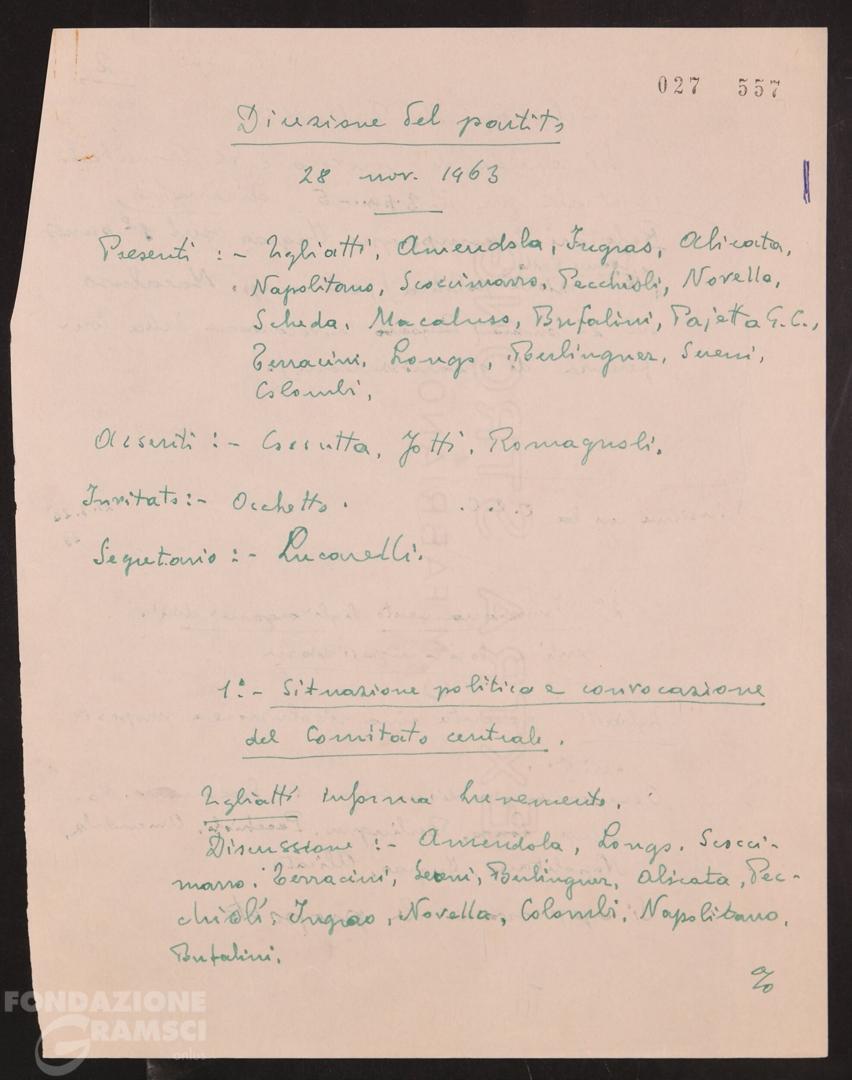 027 557
Direzione del partito
28 nov. 1963
Presenti :- Togliatti, Amendola, Ingrao, Alicata,
Napolitano, Scoccimarro, Pecchioli, Novella,
Scheda, Macaluso, Bufalini, Pajetta G.C.,
Terracini, Longo, Berlinguer, Sereni,
Colombi,
Assenti :- Cossutta, Jotti, Romagnoli.
Invitato :- Occhetto.
Segretario :- Lucarelli.
1°- Situazione politica e convocazione
del Comitato centrale.
Togliatti informa brevemente.
Discussione :- Amendola, Longo, Scocci-
marro, Terracini, Sereni, Berlinguer, Alicata, Pec-
chioli, Ingrao, Novella, Colombi, Napolitano,
Bufalini.
%
FONDAZIONE
GRAMSCI
onlus